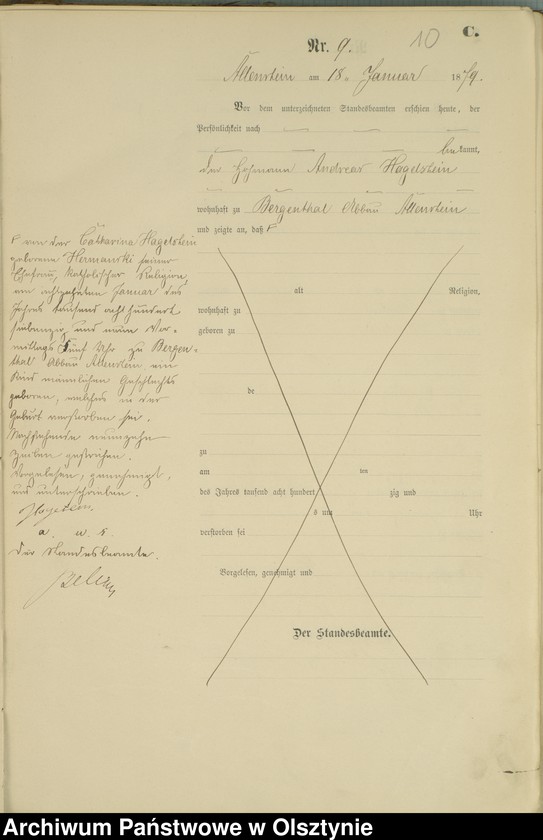 C.
Nr. 9. 10
Allenstein am 18. Januar 1879.
Vor dem unterzeichneten Standesbeamten erschien heute, der
Persönlichkeit nach
kannt,
der Andreas Hagelstein
wohnhaft zu Bergenthal Abbau Allenstein
und zeigte an, daß
von der Catharina Hagelstein
geborene Hermanski seiner
Ehefrau, katholischer Religion,
am achtzehnten Januar des
Jahres tausend acht hundert
siebenzig und neun Vor-
mittags fünf Uhr zu Bergen-
thal Abbau Allenstein ein
Kind männlichen Geschlechts
geboren, welches in der
Geburt verstorben sei.
Vorstehende neunzehn
Zeilen gestrichen.
Vorgelesen, genehmigt,
und unterschrieben.
a. u. s.
Der Standesbeamte.
alt Religion,
wohnhaft zu
geboren zu
de
zu
am ten
des Jahres tausend acht hundert zig und
s um Uhr
verstorben sei
Vorgelesen, genehmigt und
Der Standesbeamte.
Archiwum Państwowe w Olsztynie